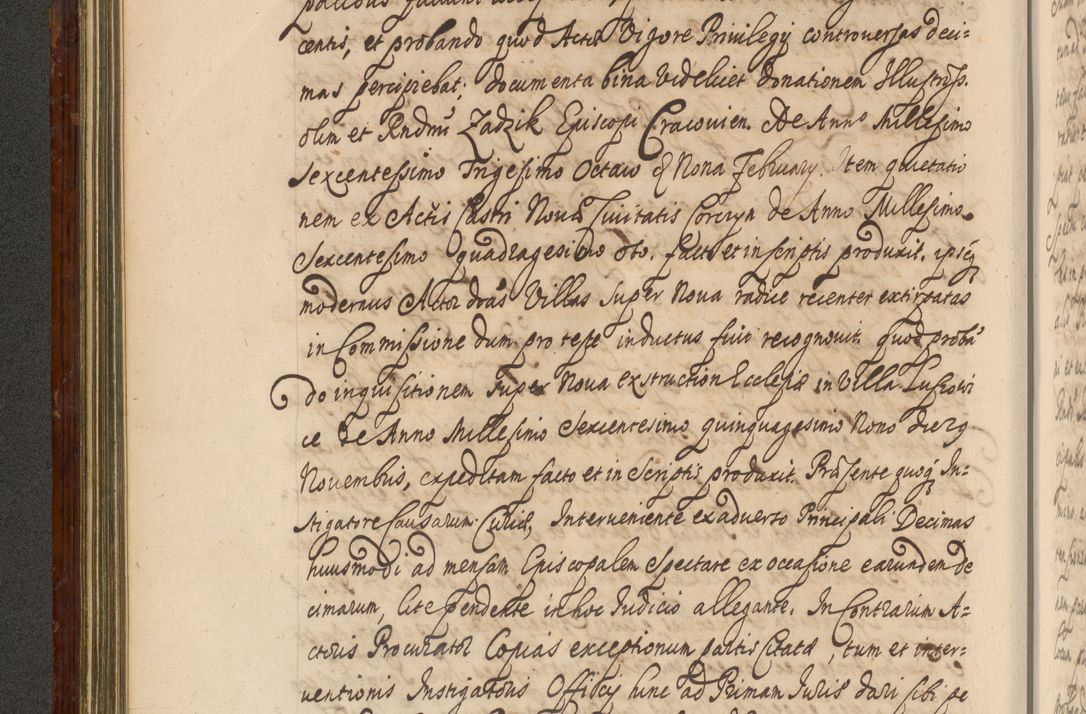 centis, et probando quod Actor Vigore Privilegij controversas deci=
mas percipiebat; documenta bina videlicet donationem Illustriss.
olim et Rndmi Zadzik Episcopi Cracovien. de Anno Millesimo
Sexcentessimo Trigesimo Octavo & Nona February. Item quietatio
nem ex Actis Castri Novae Civitatis Corczyn de Anno Millesimo
Sexcentesimo quadragesimo oto. facto et in scriptis produxit. ipsęq
modernus Actor dras Villas super Nova radice recenter extirpatas
in Commissione dum pro teste inductus fuit recognovit. quod proba
do inquisitionem super Nova exstruction Ecclesiae in Villa
ce de Anno Millesimo Sexcentesimo quinquagesimo Nono
Novembris, expeditam facto et in Scriptis produxit. Praesente quoq In=
stigatore Causarum Curiae, Interveniente ex adverso Principali Decimas
huiusmodi ad mensam Episcopalem spectare ex occasione earundem de
cimarum, lite pendente in hoc Iudicio allegante. In Contrarium A=
ctoris Procurator Copias exceptionum partis Citatae, tum et inter=
ventionis Instigatoris Officij hinc ad Primam Iuris dari sibi pe